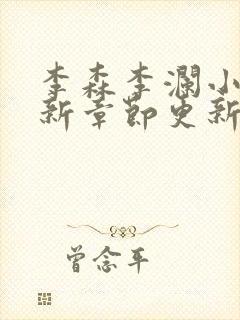 李森李澜小
新章節更新
曾念平